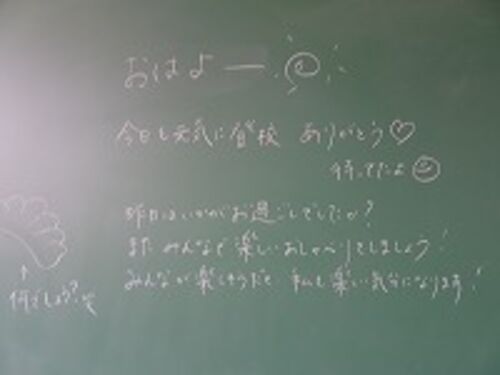 おはよー
今日も元気に登校 ありがとう♡
待ってたよ
昨日はいかがお過ごしでしたか?
また みんなで楽しいおしゃべりをしましょう!
みんなが楽しそうだと 私も楽しい気分になります!
↑
何でしょう?笑